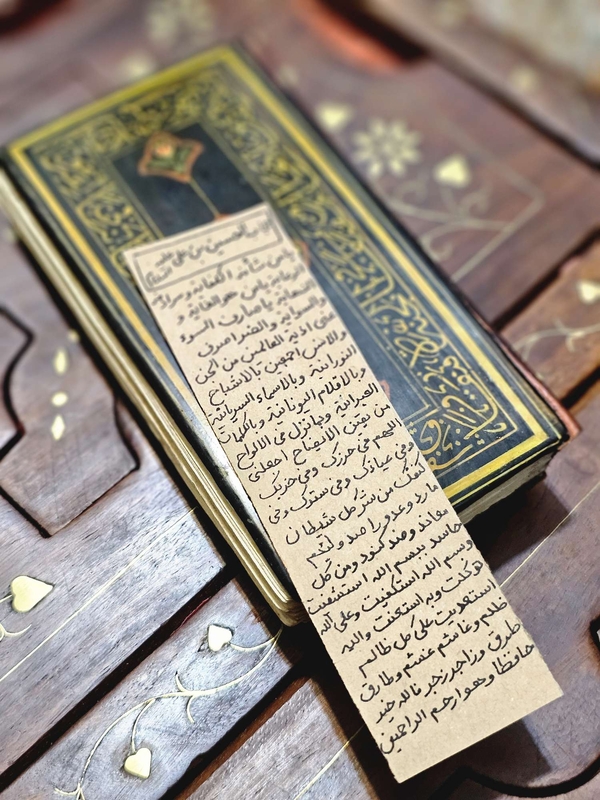 الحسين بن علي عليه السلام
يا من شأنه الكفاية وسرادقه
الرعاية يا من هو الغاية و
النهاية يا صارف السوء
والسواية والضر اصرف
عني اذية العالمين من الجن
والانس اجمعين بالاشباح
النورانية وبالاسماء السريانية
وبالاقلام اليونانية وبالكلمات
العبرانية وبما نزل في الالواح
من يقين الايضاح اجعلني
اللهم في حرزك وفي حزبك
وفي عياذك وفي سترك وفي
كنفك من شر كل شيطان
مارد وعدو راصد ولئيم
معاند وضد كنود ومن كل
حاسد ببسم الله استشفيت
وبسم الله استكفيت وعلى الله
توكلت وبه استعنت واليه
استعديت على كل ظالم
ظلم وغاشم غشم وطارق
طرق وزاجر زجر فالله خير
حافظا وهو ارحم الراحمين